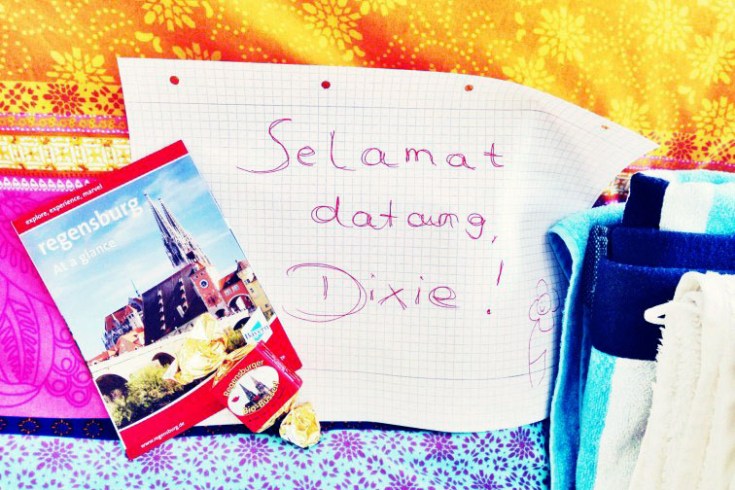 Selamat
datang,
Dixie!
explore, experience, marvel
regensburg
At a glance
www.regensburg.de
Regensburger